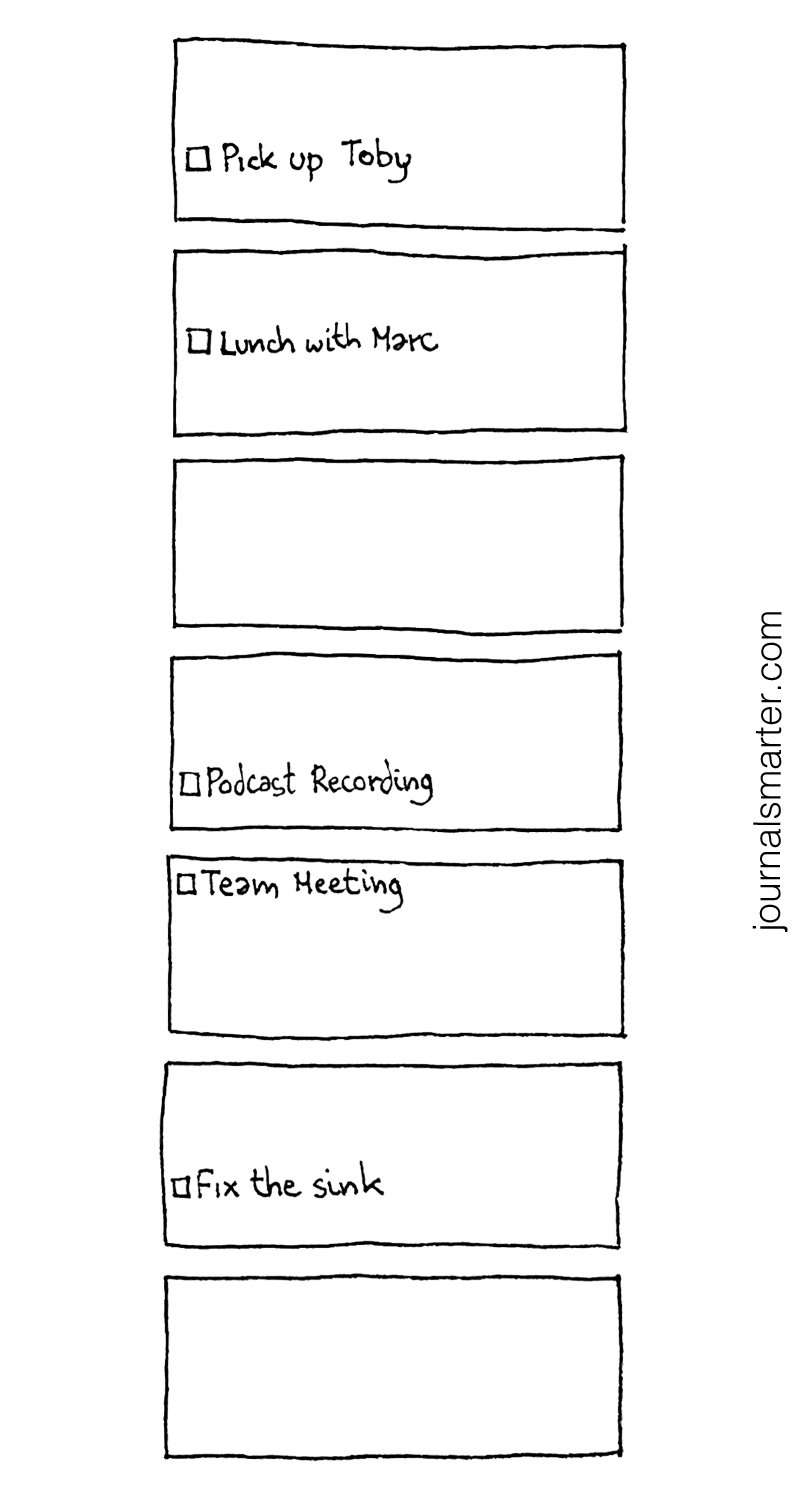 Pick up Toby
Lunch with Marc
Podcast Recording
Team Meeting
Fix the sink
journalsmarter.com